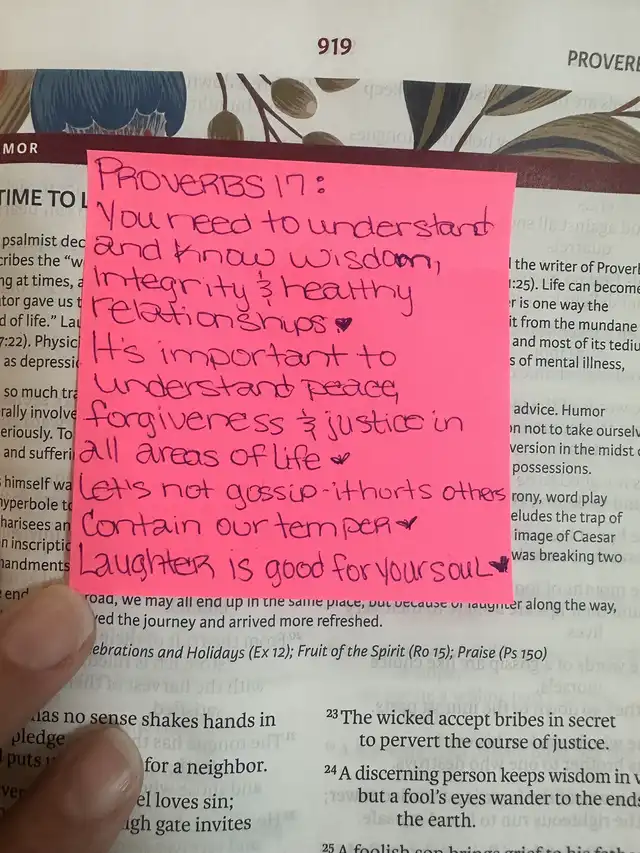 919
PROVERB
MOR
TIME TO L
psalmist dec
cribes the "w
ng at times, a
tor gave us t
d of life." Lau
7:22). Physic
as depressi
so much tra
rally involve
eriously. To
and sufferi
himself wa
hyperbole to
harisees an
n inscriptic
nandments
PROVERBS 17:
You need to understand
and know wisdom,
integrity & healthy
relationships ♥
It's important to
understand peace,
forgiveness & justice in
all areas of life ♥
Let's not gossip-it hurts others
Contain our temper ♥
Laughter is good for your soul ♥
d the writer of Proverb
1:25). Life can become
r is one way the
it from the mundane
and most of its tediu
s of mental illness,
advice. Humor
n not to take ourselv
version in the midst o
possessions.
rony, word play
eludes the trap of
image of Caesar
was breaking two
end
road, we may all end up in the same place, but because of laughter along the way,
ved the journey and arrived more refreshed.
ebrations and Holidays (Ex 12); Fruit of the Spirit (Ro 15); Praise (Ps 150)
has no sense shakes hands in
pledge
puts u
for a neighbor.
el loves sin;
igh gate invites
23 The wicked accept bribes in secret
to pervert the course of justice.
24 A discerning person keeps wisdom in v
but a fool's eyes wander to the ends
the earth.
25 A foolish son brings grief to his fath